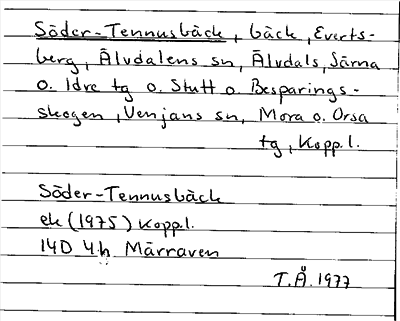 Söder-Tennusbäck, bäck, Everts-
berg, Älvdalens sn, Älvdals, Särna
o. Idre tg o. Stutt o Besparings-
skogen, Venjans sn, Mora o. Orsa
tg, Kopp.l.
Söder-Tennusbäck
ek (1975) Kopp.l.
14D 4h Märraven
T.Å. 1977